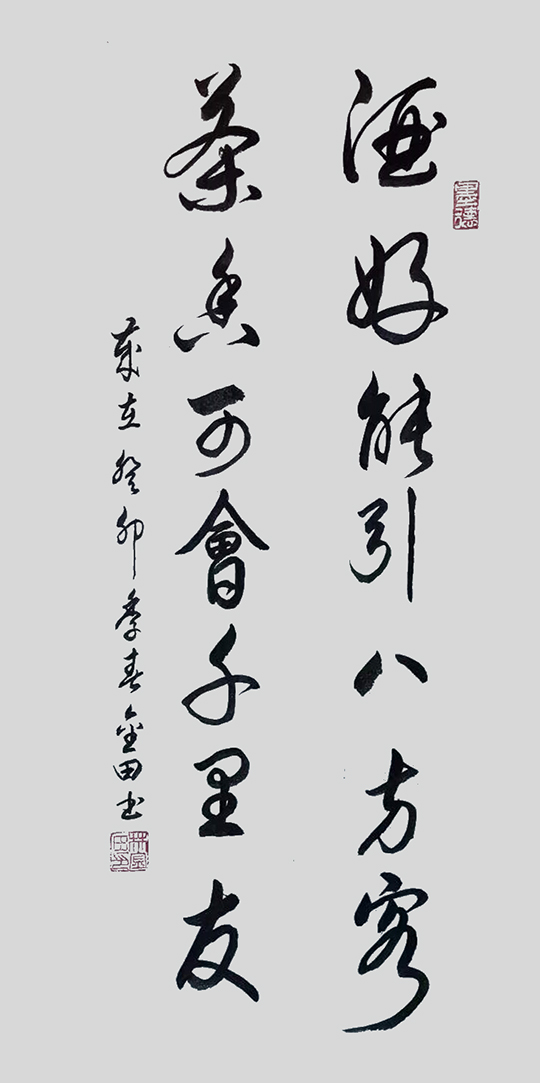 酒好能引八方客
茶香可會千里友
歲在癸卯季春金田書